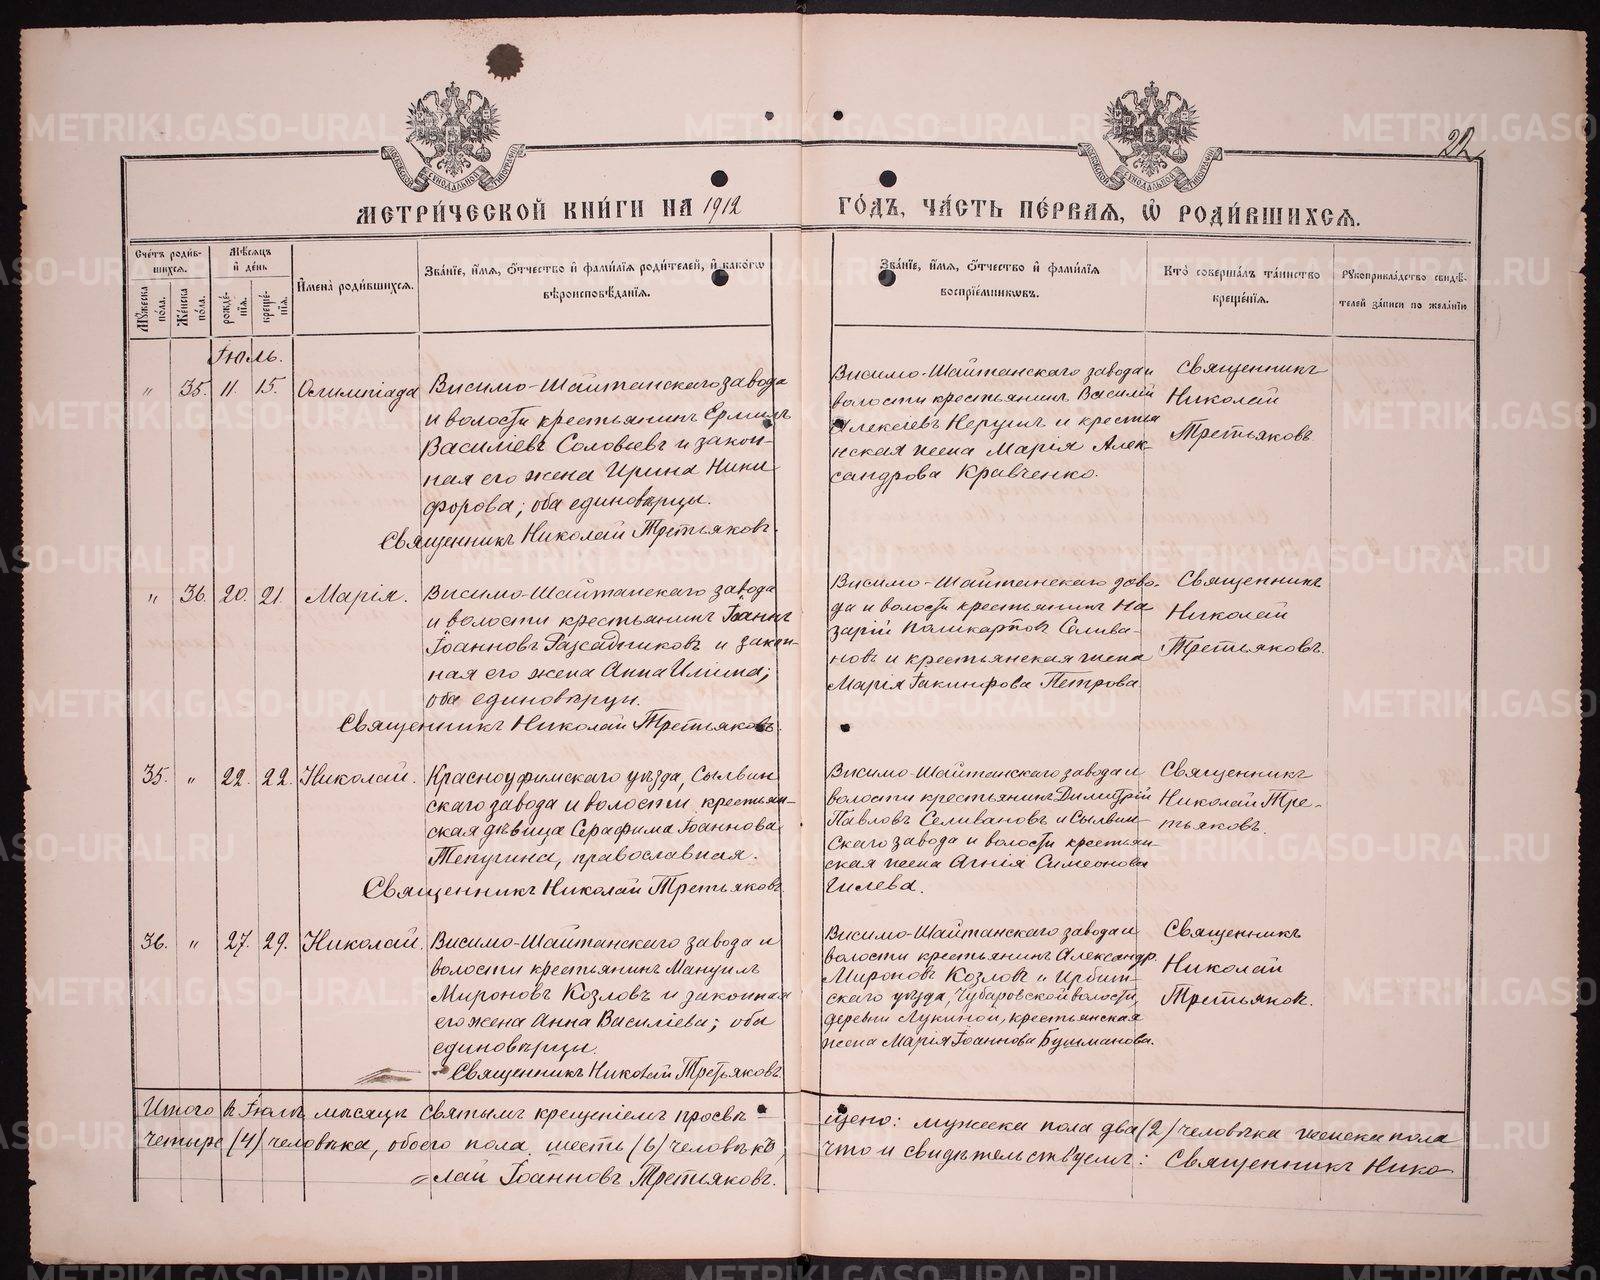 22
МЕТРИ́ЧЕСКОЙ КНИ́ГИ НА 1912 ГО́ДЪ, ЧА́СТЬ ПЕ́РВАЯ, Ѽ РОДИ́ВШИХСЯ.
Сче́тъ роди́в-
шихся.
Мꙋ́жеска по́ла.
Же́нска по́ла.
Мѣ́сяцъ
и де́нь
рожде́-
нїя.
креще́-
нїя.
Имена̀ роди́вшихся.
Зва́нїе, и́мя, ѻ́тчество и фами́лїя роди́телей, и како́гѡ
вѣроисповѣ́данїя.
Зва́нїе, и́мя, ѻ́тчество и фами́лїя
воспрїе́мникѡвъ.
Кто̀ соверша́лъ та́инство
креще́нїя.
Рꙋкоприкла́дство свидѣ́-
телей за́писи по жела́нїю
Іюль.
" 35. 11. 15. Олимпіада
Висимо-Шайтанскаго завода
и волости крестьянинъ Ермилъ
Василіевъ Соловьевъ и закон-
ная его жена Ирина Ники
форова; оба единовѣрцы.
Священникъ Николай Третьяковъ.
Висимо-Шайтанскаго завода и
волости крестьянинъ Василій
Алексіевъ Неругинъ и крестья
нская жена Марія Алек-
сандрова Кравченко.
Священникъ
Николай
Третьяковъ
" 36. 20. 21. Марія.
Висимо-Шайтанскаго завода
и волости крестьянинъ Іоаннъ
Іоанновъ Разсадниковъ и закон-
ная его жена Анна Ильина;
оба единовѣрцы.
Священникъ Николай Третьяковъ.
Висимо-Шайтанскаго заво-
да и волости крестьянинъ На
зарій Поликарповъ Селива-
новъ и крестьянская жена
Марія Іакинфова Петрова
Священникъ
Николай
Третьяковъ.
35. " 22. 22. Николай.
Красноуфимскаго уѣзда, Сылвин
скаго завода и волости крестьян-
ская дѣвица Серафима Іоаннова
Тепугина, православная.
Священникъ Николай Третьяковъ.
Висимо-Шайтанскаго завода и
волости крестьянинъ Димитрій
Павловъ Селивановъ и Сылвин
скаго завода и волости крестьян
ская жена Агнія Симеонова
Гилева.
Священникъ
Николай Тре-
тьяковъ.
36. " 27. 29. Николай.
Висимо-Шайтанскаго завода и
волости крестьянинъ Мануилъ
Мироновъ Козловъ и законная
его жена Анна Василіева; оба
единовѣрцы.
Священникъ Николай Третьяковъ
Висимо-Шайтанскаго завода и
волости крестьянинъ Александр.
Мироновъ Козловъ и Ирбит-
скаго уѣзда, Чубаровской волости,
деревни Лукиной, крестьянская
жена Марія Іоаннова Бушманова.
Священникъ
Николай
Третьяков.
Итого въ Іюлѣ мѣсяцѣ святымъ крещеніемъ просвѣ- щено: мужеска пола два (2) человѣка женска пола
четыре (4) человѣка, обоего пола шесть (6) человѣкъ, что и свидѣтельствуемъ: Священникъ Нико-
лай Іоанновъ Третьяковъ.
METRIKI.GASO-URAL.RU